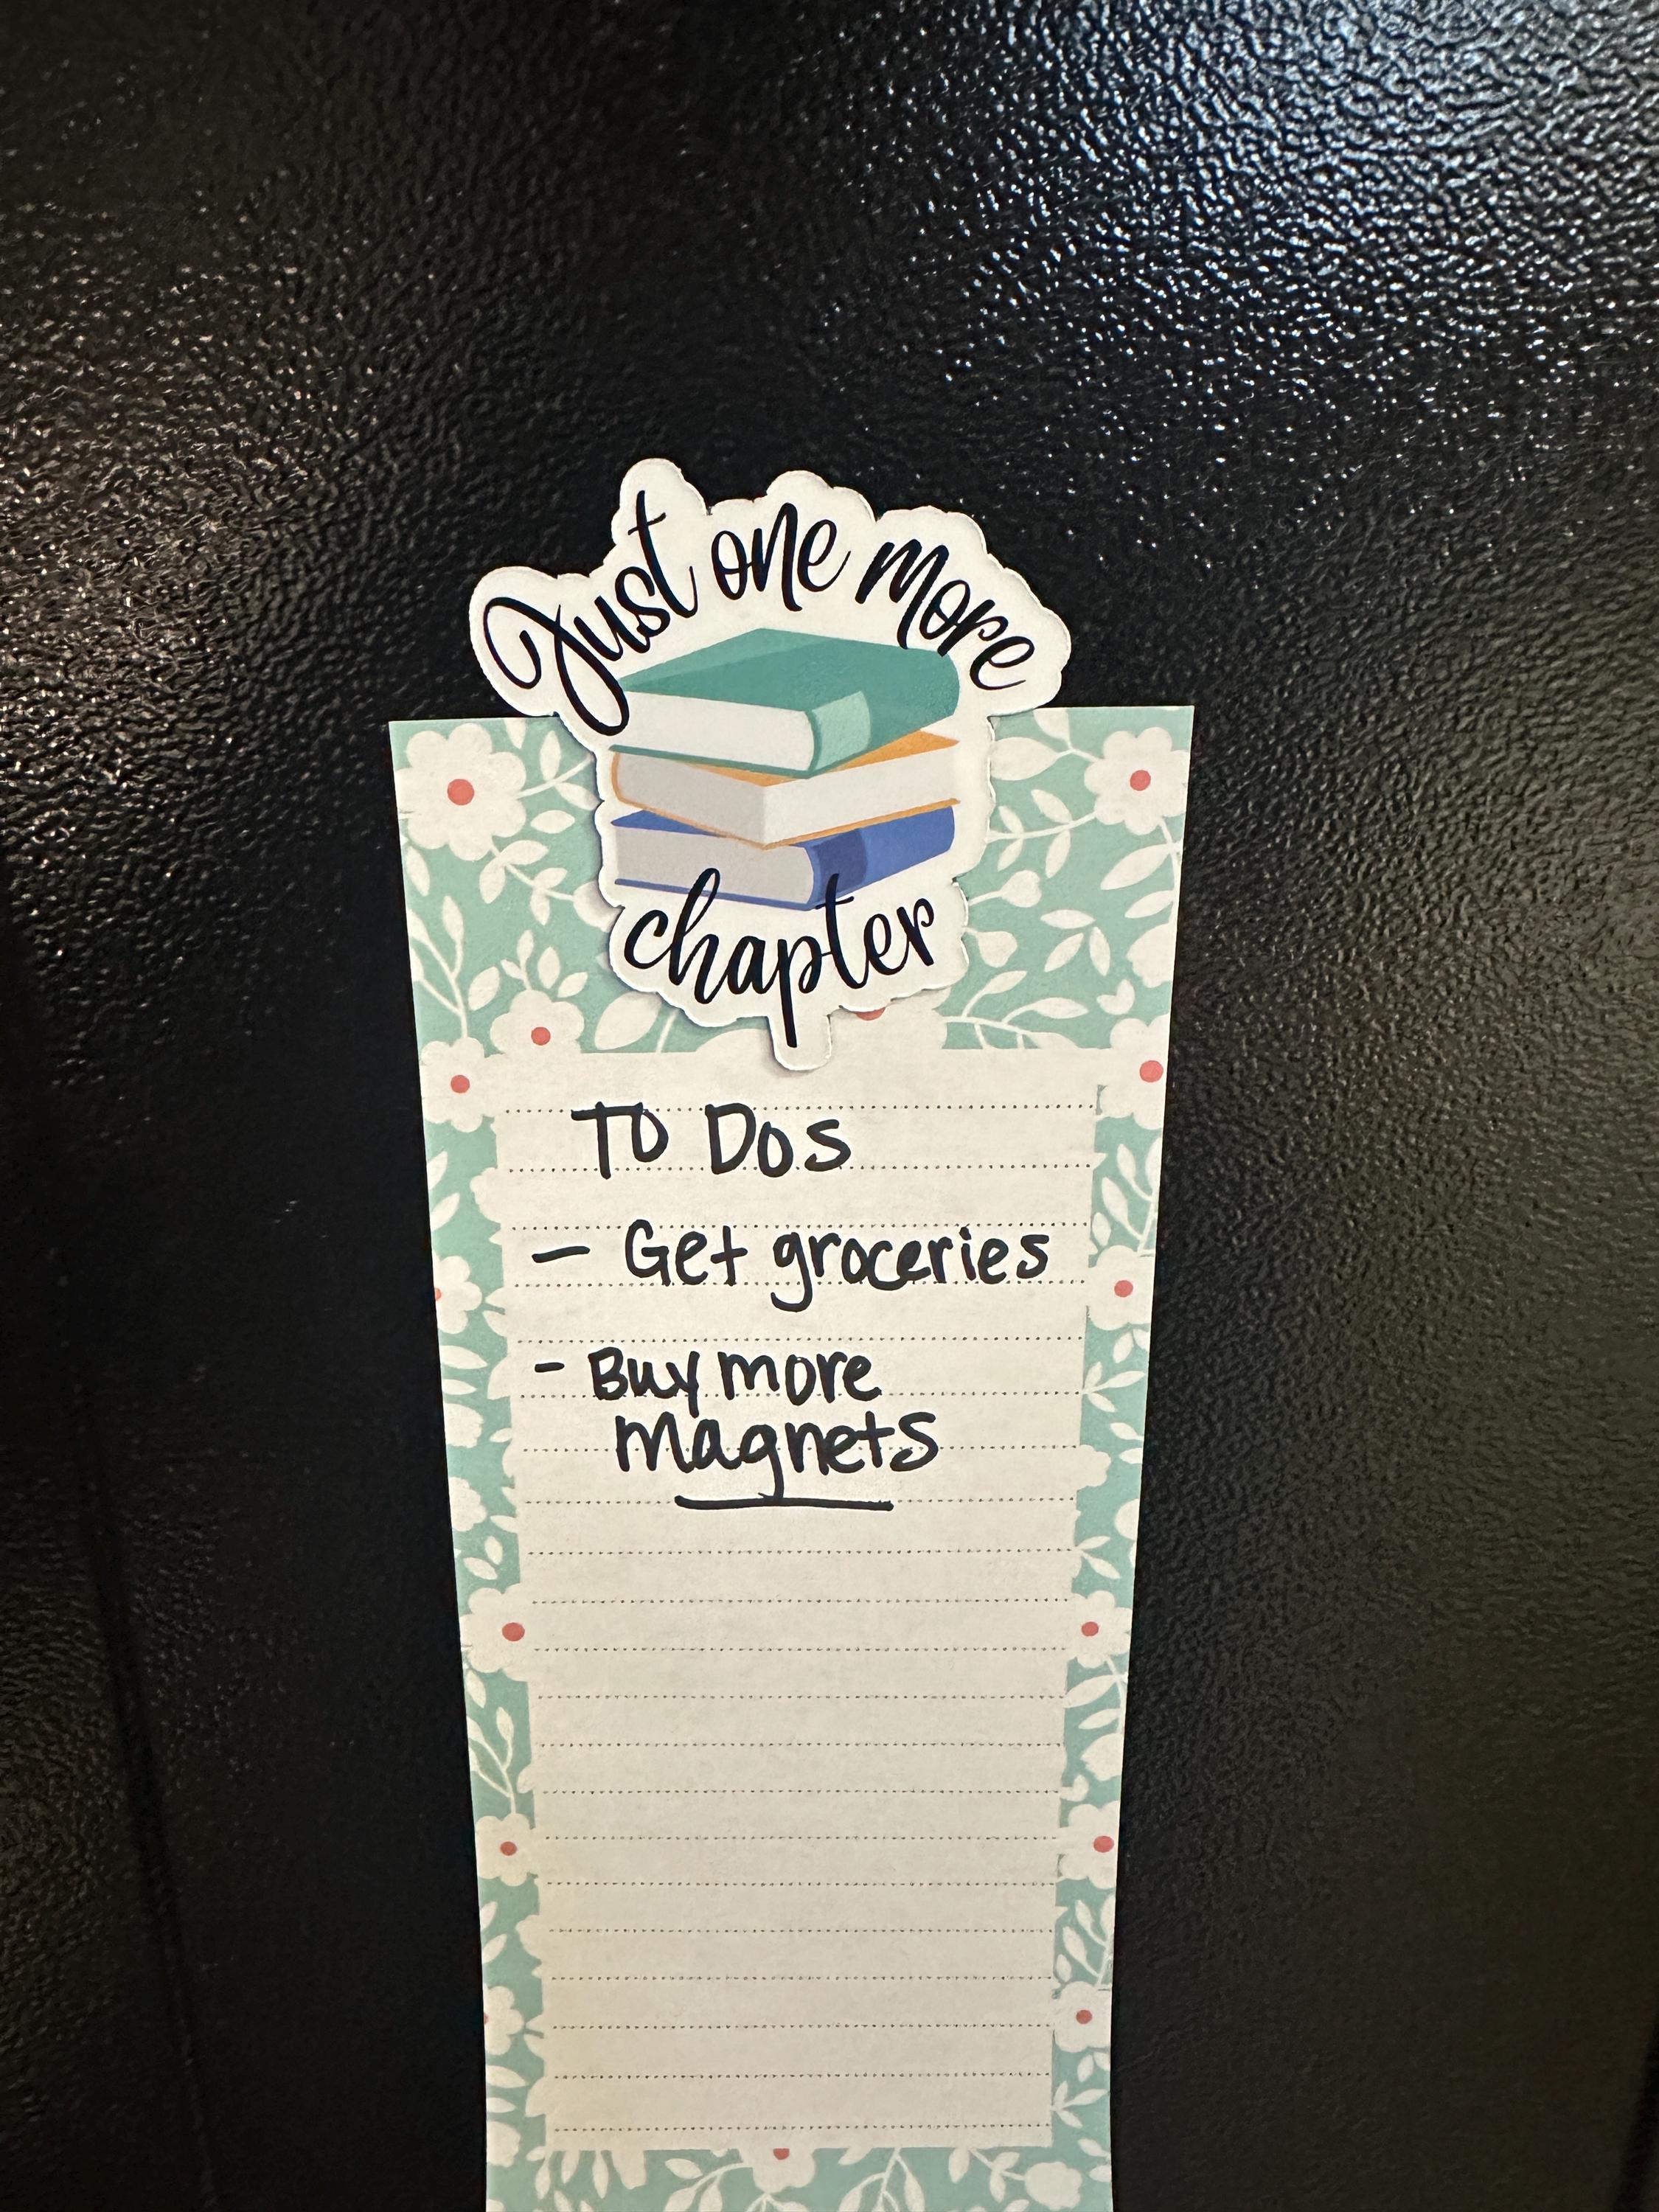 Just one more
chapter
To Dos
- Get groceries
- Buy more
magnets